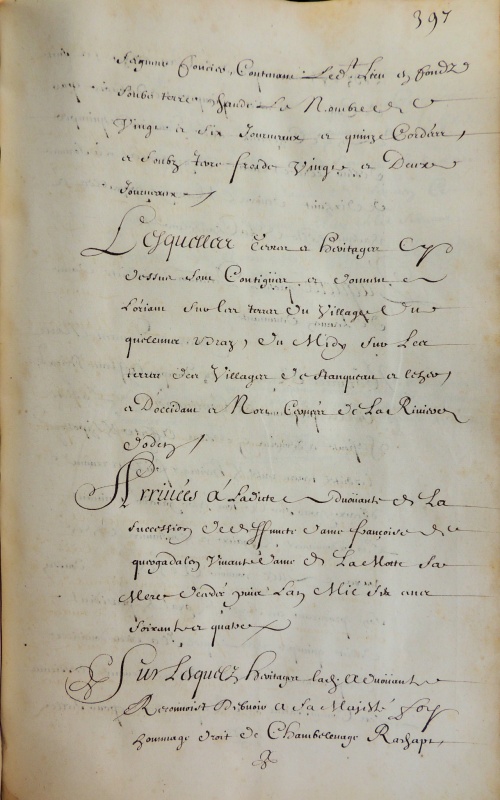 397
foncier, Contenant Led. Lieu en fondz
soubz terre chaude Le Nombre de
Vingt et six Journeaux et quinze Cordes,
et soubz terre froide Vingt et Deux
Journeaux
Lesquelles terres et heritages Cy
dessus sont Contigües et donnent
Loriant sur les terres du Village du
quelennec braz, du Midy sur Les
terres des Villages de Stanqueau et
et Doccidant et Nort, de La Riviere
dodet
Arrivées á Ladicte advouante de La
succession de deffuncte dame françoise de
Vivante dame de La Motte sa
Mere decedée Lan Mil six cent
soixante et quatre
Sur Lesquelz heritages lad. advouante
Reconnoist debvoir a sa Majesté foy
hommage droit de Chambelenage Rachapt